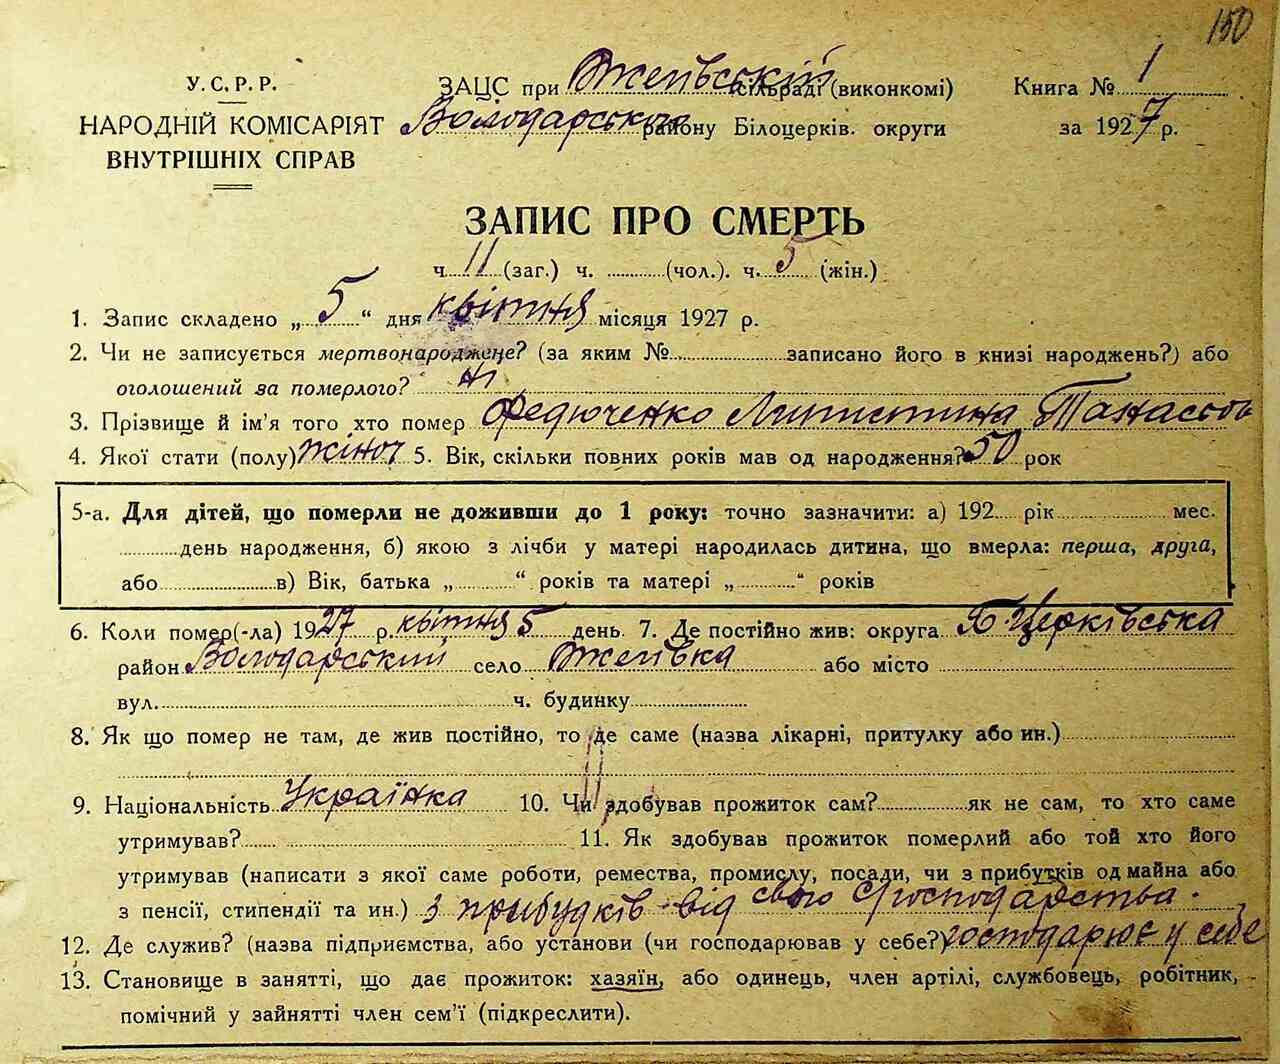 150
У.С.Р.Р.
НАРОДНІЙ КОМІСАРІЯТ
ВНУТРІШНІХ СПРАВ
ЗАЦС при Вжеївській сільраді (виконкомі)
Володарського району Білоцерків. округи
Книга № 1
за 1927 р.
ЗАПИС ПРО СМЕРТЬ
ч. 11 (заг.) ч. (чол.). ч. 5 (жін.)
1. Запис складено „ 5 “ дня квітня місяця 1927 р.
2. Чи не записується мертвонароджене? (за яким № записано його в книзі народжень?) або
оголошений за померлого? ні
3. Прізвище й ім'я того хто помер Федюченко Танасов
4. Якої стати (полу) жіноч 5. Вік, скільки повних років мав од народження? 50 рок
5-а. Для дітей, що померли не доживши до 1 року: точно зазначити: а) 192 рік мес.
день народження, б) якою з лічби у матері народилась дитина, що вмерла: перша, друга,
або в) Вік, батька „ “ років та матері „ “ років
6. Коли помер(-ла) 1927 р. квітня 5 день. 7. Де постійно жив: округа Б Церківська
район Володарський село Вжеївка або місто
вул. ч. будинку
8. Як що помер не там, де жив постійно, то де саме (назва лікарні, притулку або ин.)
9. Національність Українка 10. Чи здобував прожиток сам? як не сам, то хто саме
утримував? 11. Як здобував прожиток померлий або той хто його
утримував (написати з якої саме роботи, ремества, промислу, посади, чи з прибутків од майна або
з пенсії, стипендії та ин.) з прибудків від свого господарства.
12. Де служив? (назва підприємства, або установи (чи господарював у себе?) господарює у себе
13. Становище в занятті, що дає прожиток: хазяїн, або одинець, член артілі, службовець, робітник,
помічний у зайнятті член сем'ї (підкреслити).